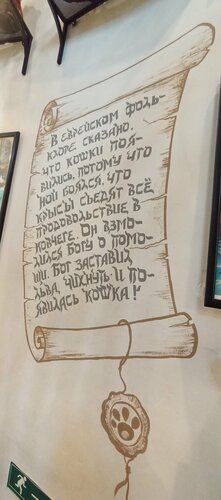 В еврейском фоль-
клоре сказано,
что кошки поя-
вились, потому что
Ной боялся, что
крысы съедят всё
продовольствие в
ковчеге. Он взмо-
лился Богу о помо-
щи. Бог заставил
льва, чихнуть и по-
явилась кошка!